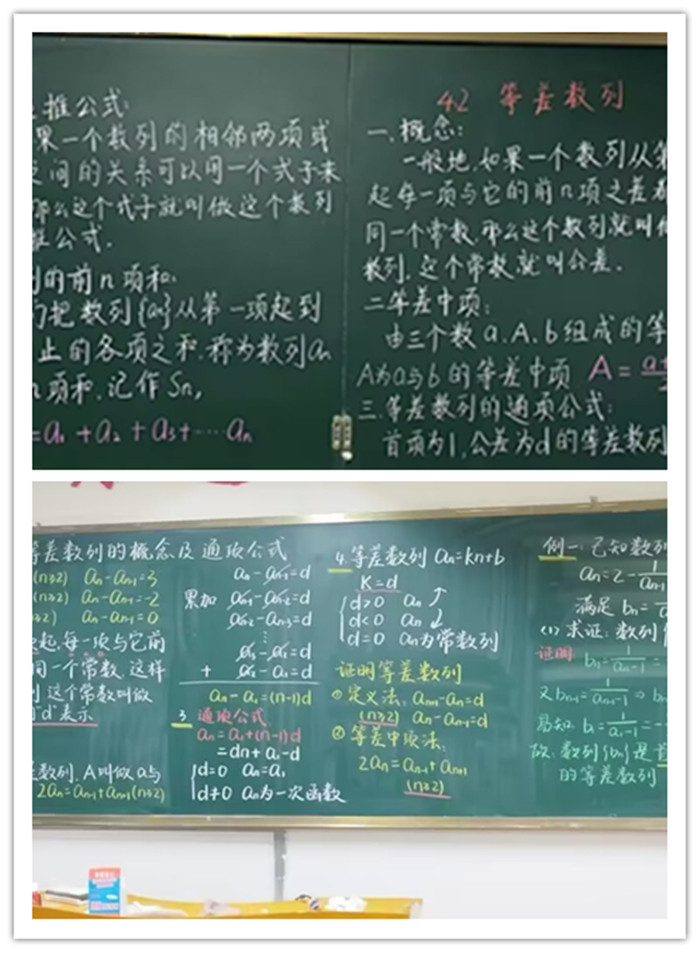 推公式:
果一个数列的相邻两项或
之间的关系可以用一个式子来
那么这个式子就叫做这个数列
推公式.
的前n项和:
们把数列{an}从第一项起到
止的各项之和.称为数列an
n项和.记作Sn,
=a1+a2+a3+⋯an
4.2 等差数列
一.概念:
一般地.如果一个数列从第
起每一项与它的前n项之差都
同一个常数.那么这个数列就叫做
数列.这个常数就叫公差.
二等差中项:
由三个数a.A.b组成的等
A为a与b的等差中项 A=
三.等差数列的通项公式:
首项为1,公差为d的等差数列
等差数列的概念及通项公式
(n≥2) an-an-1=3
(n≥2) an-an-1=-2
≥2) an-an-1=0
项起,每一项与它前
同一个常数.这样
这个常数叫做
"d"表示
差数列.A叫做a与
2an=an-1+an+1(n≥2)
an-an-1=d
累加 an-1-an-2=d
an-2-an-3=d
⋮
a3-a2=d
+ a2-a1=d
an-a1=(n-1)d
3. 通项公式
an=a1+(n-1)d
=dn+a1-d
{d=0 an=a1
d≠0 an为一次函数
4.等差数列 an=kn+b
K=d
{d>0 an↗
d<0 an↘
d=0 an为常数列
证明等差数列
①定义法: an+1-an=d
(n≥2) an-an-1=d
②等差中项法:
2an=an-1+an+1
(n≥2)
例一:已知数列
an=2-1/an-1
满足 bn=
(1)求证:数列{
证明: bn=1/an-1=
又bn+1=1/an+1-1⇒b
易知:b1=1/a1-1=-
故:数列{bn}是首
的等差数列